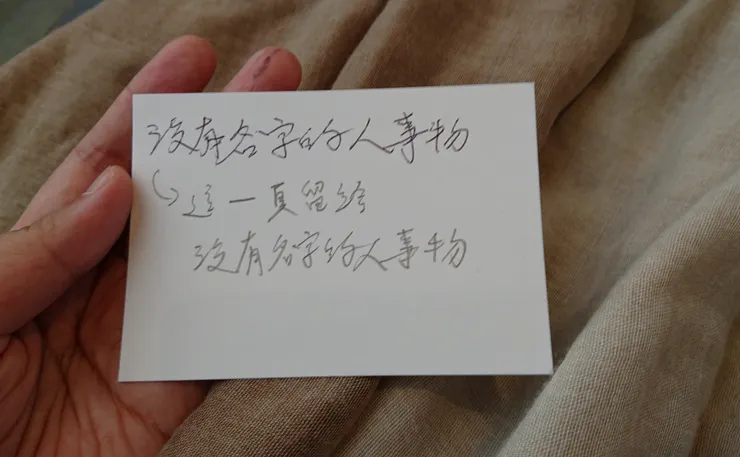 沒有名字的人事物
這一頁留給
沒有名字的人事物